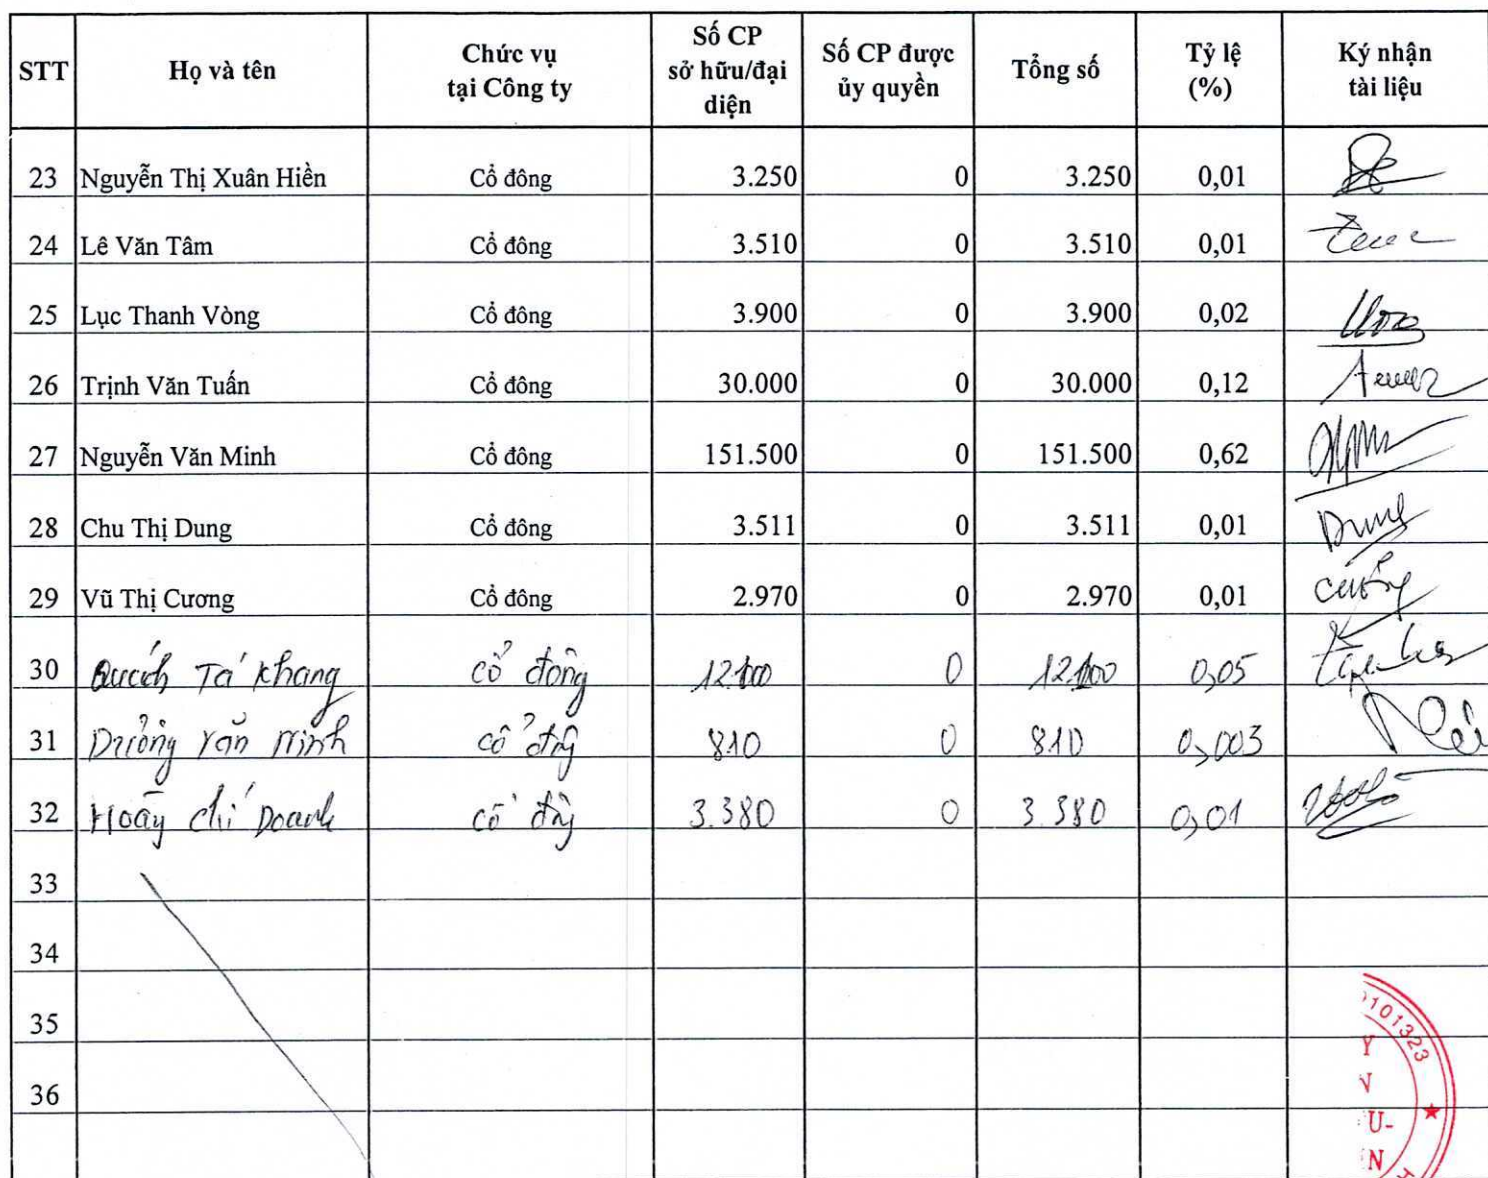 STT Họ và tên Chức vụ tại Công ty Số CP sở hữu/đại diện Số CP được ủy quyền Tổng số Tỷ lệ (%) Ký nhận tài liệu
23 Nguyễn Thị Xuân Hiền Cổ đông 3.250 0 3.250 0,01
24 Lê Văn Tâm Cổ đông 3.510 0 3.510 0,01
25 Lục Thanh Vòng Cổ đông 3.900 0 3.900 0,02
26 Trịnh Văn Tuấn Cổ đông 30.000 0 30.000 0,12
27 Nguyễn Văn Minh Cổ đông 151.500 0 151.500 0,62
28 Chu Thị Dung Cổ đông 3.511 0 3.511 0,01 Dung
29 Vũ Thị Cương Cổ đông 2.970 0 2.970 0,01 Cương
30 Quách Tá Khang cổ đông 0 0,05
31 Dương Văn Minh cổ đông 810 0 810 0,003
32 Hoàng Chí Doanh cổ đông 3.380 0 3.380 0,01
33
34
35
36
0101323
Y
V
U-
N